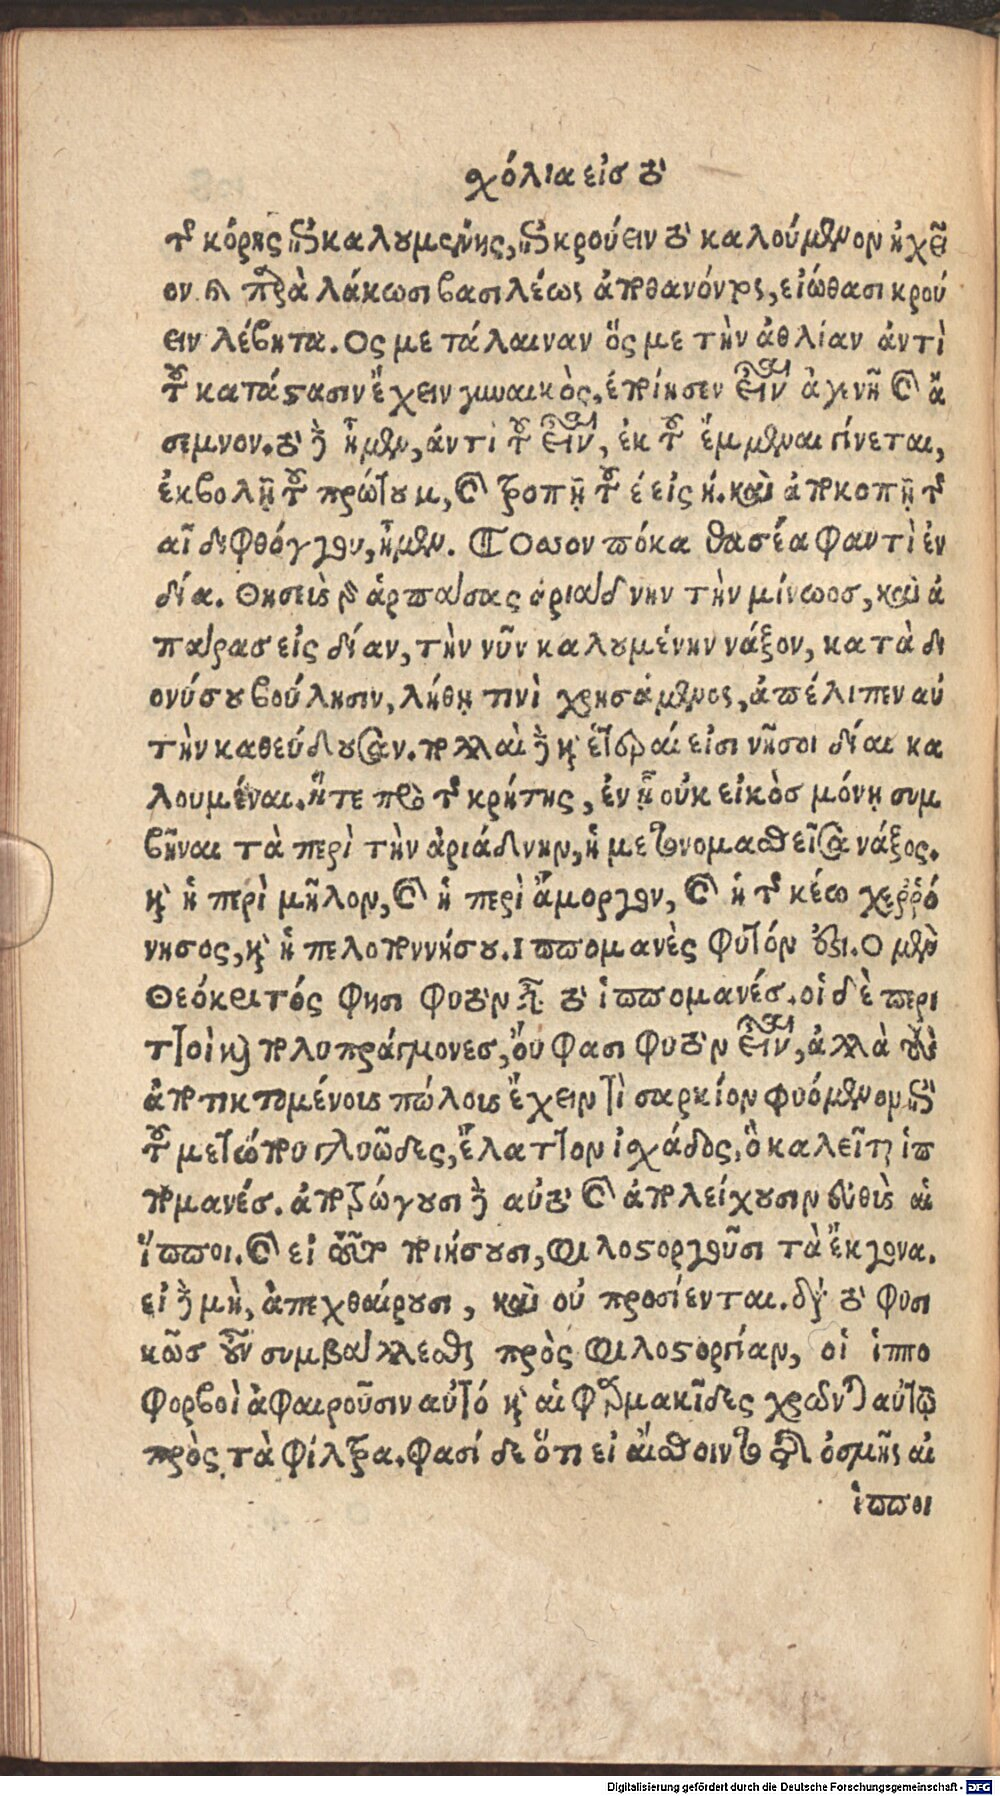 σχόλια εἰς τὸ
τῆς κόρης ἐπικαλουμένης, ἐπικρούειν τὸ καλούμενον ἠχεῖ
ον. καὶ παρὰ λάκωσι βασιλέως ἀποθανόντος, εἰώθασι κρού
ειν λέβητα. Ος με τάλαιναν ὅς με τὴν ἀθλίαν ἀντὶ
τοῦ κατάστασιν ἔχειν γυναικὸς, ἐποίησεν εἶναι ἀγενῆ καὶ ἄ
σεμνον. τὸ δὲ ἦμεν, ἀντὶ τοῦ εἶναι, ἐκ τοῦ ἔμμεναι γίνεται,
ἐκβολῇ τοῦ πρώτου μ, καὶ τροπῇ τοῦ ε εἰς η. καὶ ἀποκοπῇ τῆς
αι διφθόγγου, ἦμεν. Οσσον πόκα θασέα φαντὶ ἐν
δία. Θησεὺς γὰρ ἁρπάσας ἀριάδνην τὴν μίνωος, καὶ ἀ
πάρας εἰς δίαν, τὴν νῦν καλουμένην νάξον, κατὰ δι
ονύσου βούλησιν, λήθῃ τινὶ χρησάμενος, ἀπέλιπεν αὐ
τὴν καθεύδουσαν. πολλαὶ δὲ καὶ ἕτεραί εἰσι νῆσοι δίαι κα
λουμέναι. ἥτε πρὸ τῆς κρήτης, ἐν ᾗ οὐκ εἰκὸς μόνῃ συμ
βῆναι τὰ περὶ τὴν ἀριάδνην, ἡ μετονομασθεῖσα νάξος.
καὶ ἡ περὶ μῆλον, καὶ ἡ περὶ ἄμοργον, καὶ ἡ τῆς κέω χερρό
νησος, καὶ ἡ πελοποννήσου. Ιππομανὲς φυτόν ἐστι. Ο μὲν
Θεόκριτός φησι φυτὸν εἶναι τὸ ἱππομανές. οἱ δὲ περι
ττοὶ καὶ πολυπράγμονες, οὔ φασι φυτὸν εἶναι, ἀλλὰ τοὺς
ἀποτικτομένους πώλους ἔχειν τὶ σαρκίον φυόμενον ἐπὶ
τοῦ μετώπου γλυῶδες, ἔλαττον ἰσχάδος, ὃ καλεῖται ἱπ
πομανές. ἀποτρώγουσι δὲ αὐτὸ καὶ ἀπολείχουσιν εὐθὺς αἱ
ἵπποι. καὶ εἰ τοῦτο ποιήσουσι, φιλοστοργοῦσι τὰ ἔκγονα.
εἰ δὲ μὴ, ἀπεχθαίρουσι, καὶ οὐ προσίενται. διὰ τὸ φυσι
κῶς οὖν συμβάλλεσθαι πρὸς φιλοστοργίαν, οἱ ἱππο
φορβοὶ ἀφαιροῦσιν αὐτό καὶ αἱ φαρμακίδες χρῶνται αὐτῷ
πρὸς τὰ φίλτρα. φασί δε ὅτι εἰ αἴσθοιντο τῆς ὀσμῆς αἱ
ἵπποι
Digitalisierung gefördert durch die Deutsche Forschungsgemeinschaft - DFG